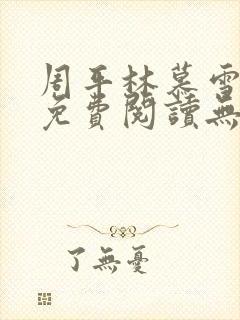 周平林慕雪
免費閱讀無
了無憂